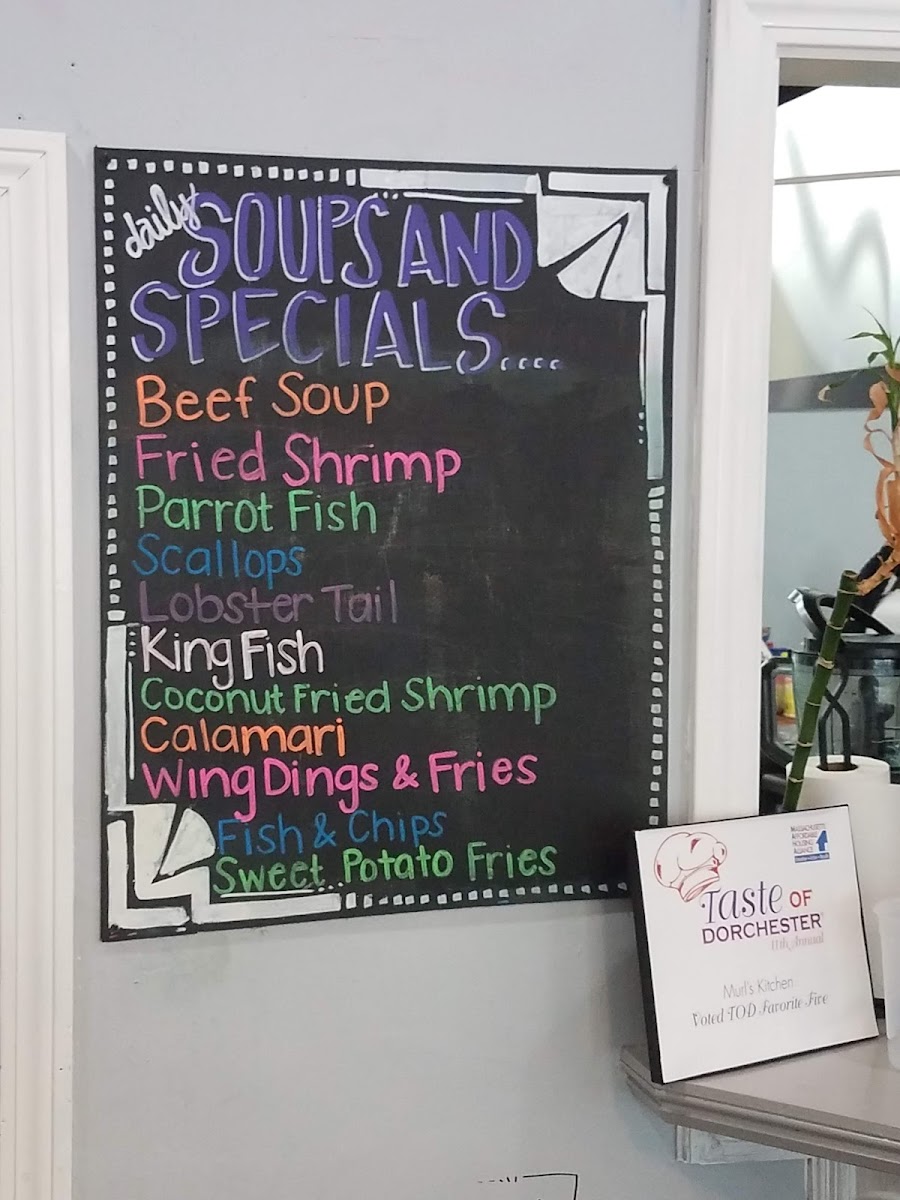 daily SOUPS AND
SPECIALS....
Beef Soup
Fried Shrimp
Parrot Fish
Scallops
Lobster Tail
King Fish
Coconut Fried Shrimp
Calamari
Wing Dings & Fries
Fish & Chips
Sweet Potato Fries
MASSACHUSETTS
AFFORDABLE
HOUSING
ALLIANCE
Taste OF
DORCHESTER
11th Annual
Murl's Kitchen
Voted TOD Favorite Five